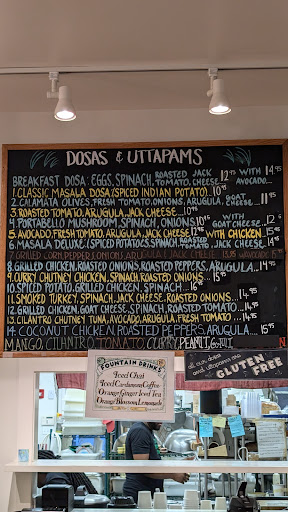 DOSAS & UTTAPAMS
BREAKFAST DOSA: EGGS, SPINACH, ROASTED TOMATO, JACK CHEESE 12.95 WITH AVOCADO... 14.95
1. CLASSIC MASALA DOSA (SPICED INDIAN POTATO)... 10.95
2. CALAMATA OLIVES, FRESH TOMATO, ONIONS, ARUGULA, GOAT CHEESE... 11.95
3. ROASTED TOMATO, ARUGULA, JACK CHEESE... 10.95
4. PORTABELLO MUSHROOM, SPINACH, ONIONS 10.95 WITH GOAT CHEESE... 12.95
5. AVOCADO, FRESH TOMATO, ARUGULA, JACK CHEESE 12.95 WITH CHICKEN... 15.45
6. MASALA DELUXE (SPICED POTATO) SPINACH, ROASTED TOMATO, JACK CHEESE 14.95
7. GRILLED CORN, PEPPERS, ONIONS, ARUGULA, JACK CHEESE
8. GRILLED CHICKEN, ROASTED ONIONS, ROASTED PEPPERS, ARUGULA... 14.95
9. CURRY CHUTNEY CHICKEN, SPINACH, ROASTED ONIONS...
10. SPICED POTATO, GRILLED CHICKEN, SPINACH...
11. SMOKED TURKEY, SPINACH, JACK CHEESE, ROASTED ONIONS... 14.95
12. GRILLED CHICKEN, GOAT CHEESE, SPINACH, ROASTED TOMATO...
13. CILANTRO CHUTNEY TUNA, AVOCADO, ARUGULA, FRESH TOMATO...
14. COCONUT CHICKEN, ROASTED PEPPERS, ARUGULA...... 15.95
MANGO, CILANTRO, TOMATO, CURRY, PEANUT,
FOUNTAIN DRINKS
Iced Chai
Iced Cardamom Coffee
Orange Ginger Iced Tea
Orange Blossom Lemonade
all our dosas
and uttapams are
GLUTEN FREE